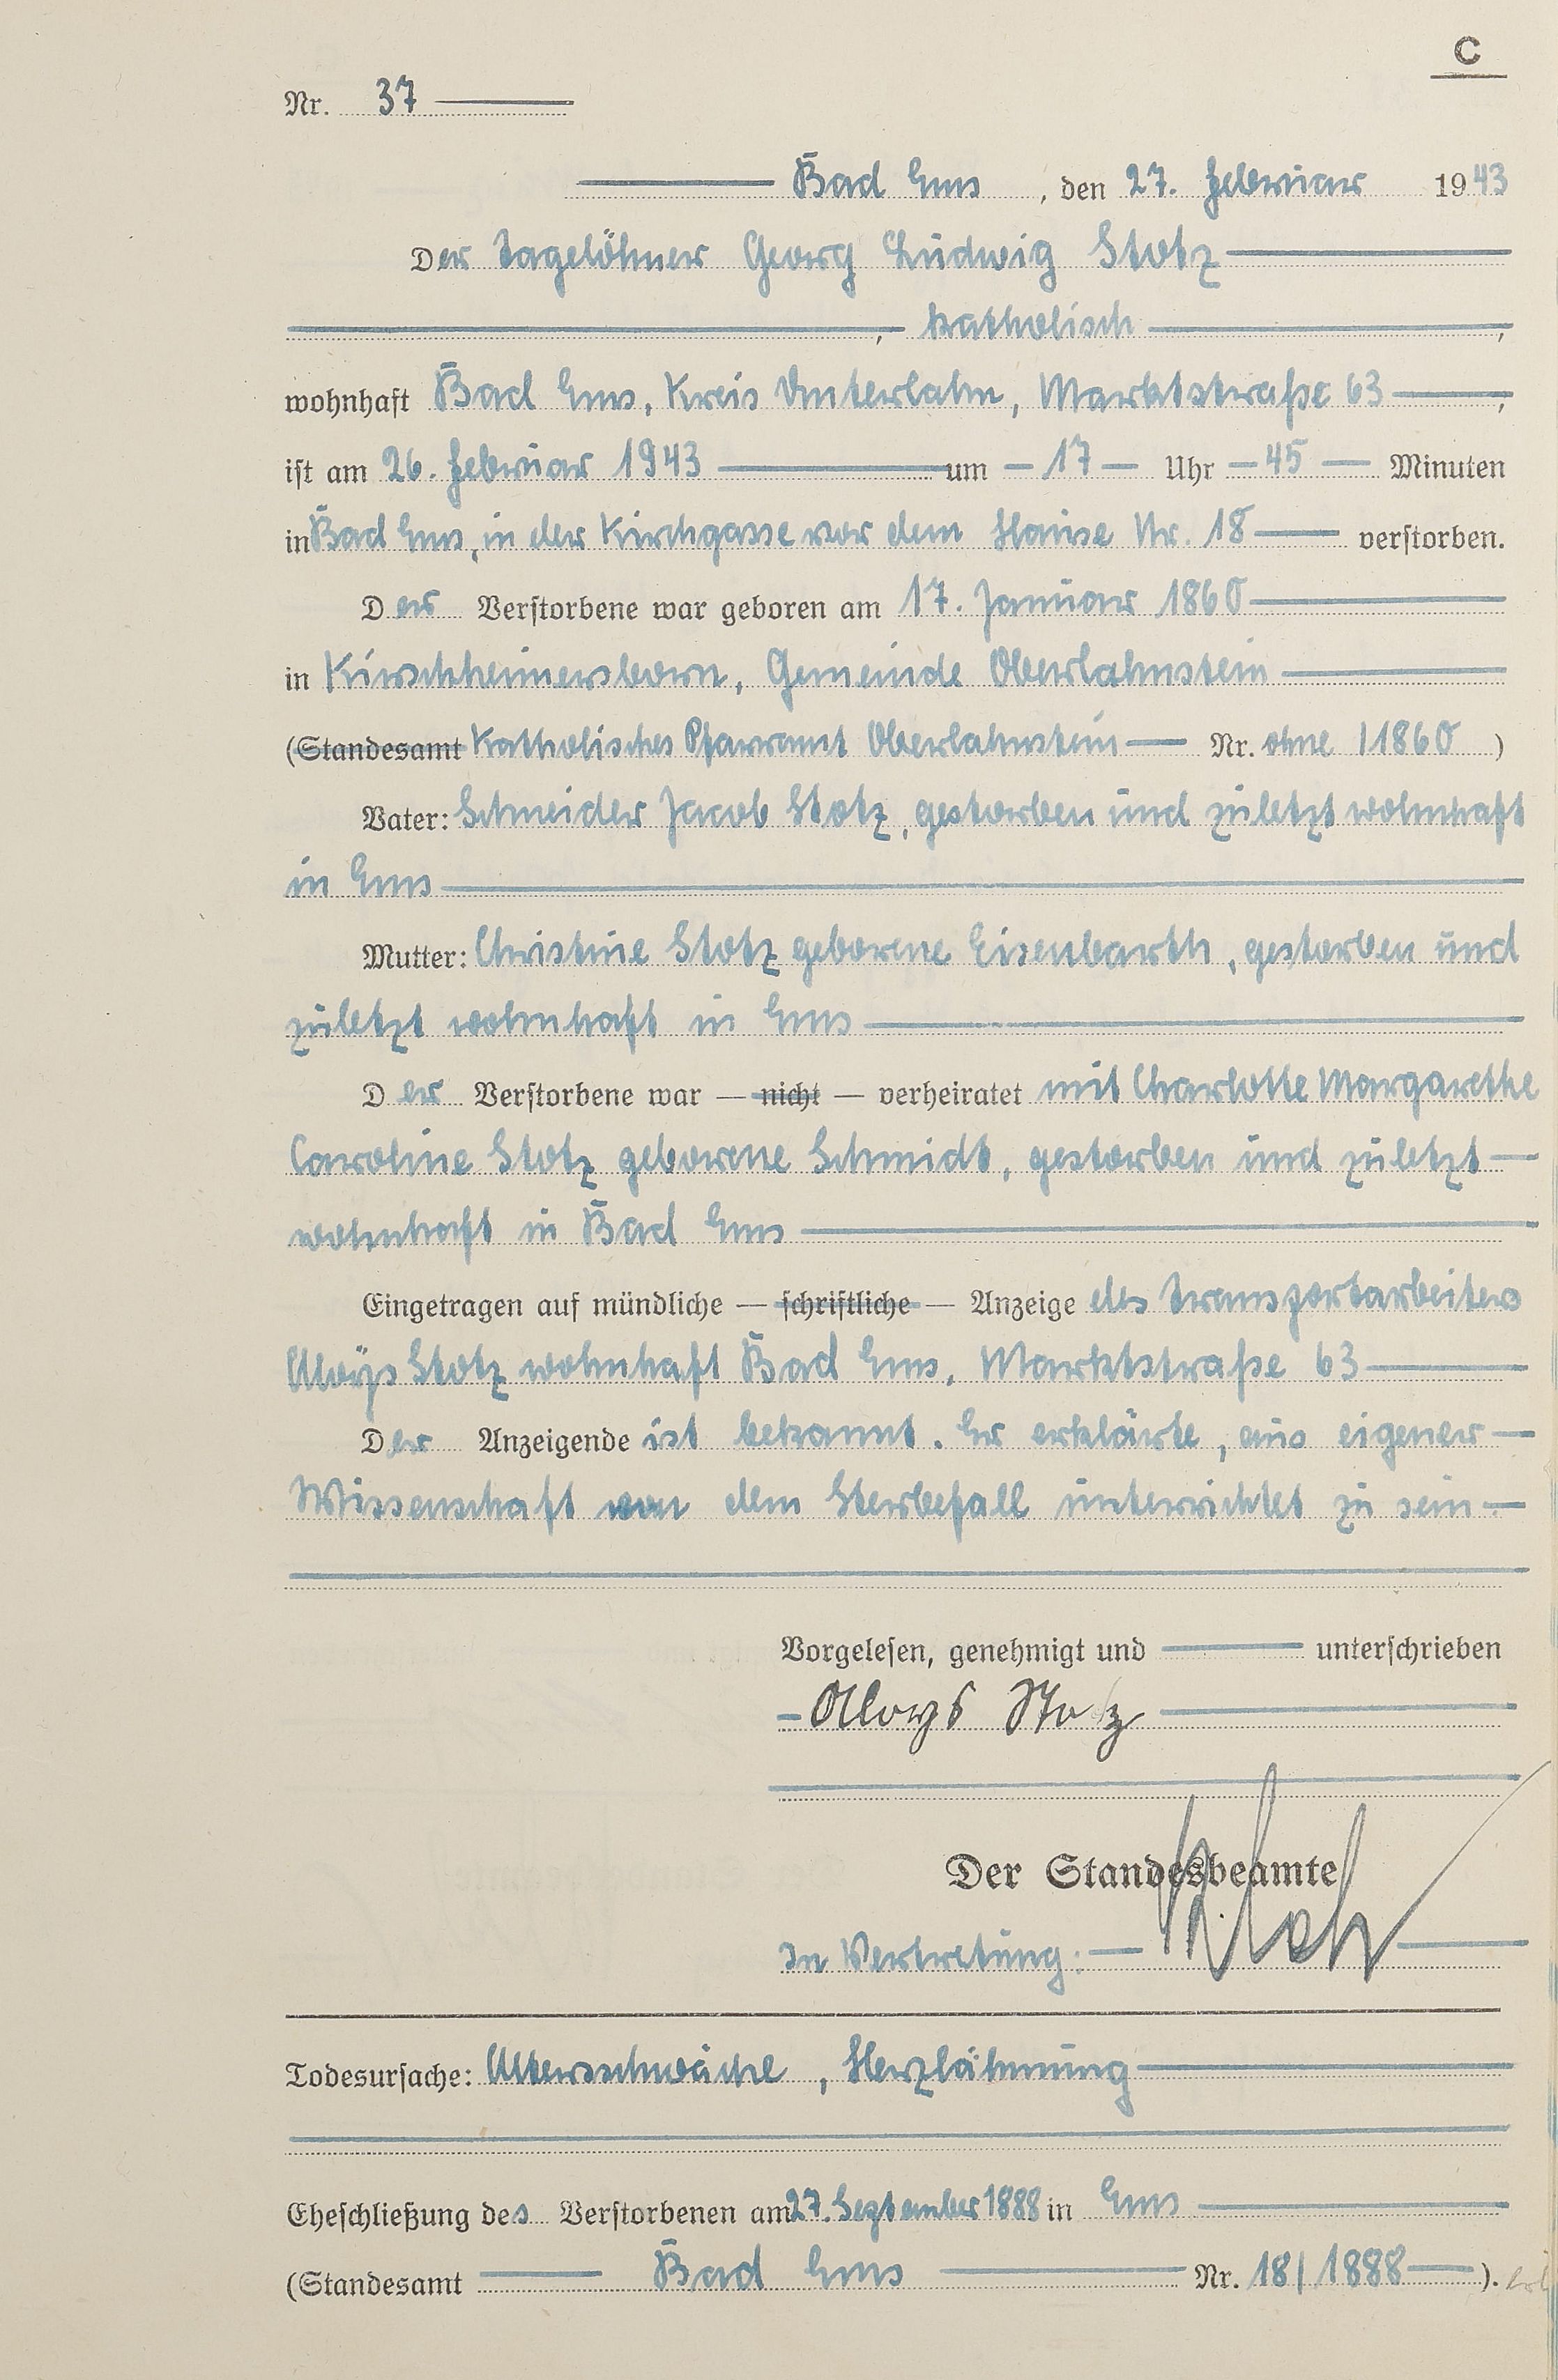 C
Nr. 37
Bad Ems, den 27. Februar 1943
Der Tagelöhner Georg Ludwig Stotz
, katholisch,
wohnhaft Bad Ems, Kreis Unterlahn, Marktstraße 63,
ist am 26. Februar 1943 um 17 Uhr 45 Minuten
in Bad Ems, in der Kirchgasse vor dem Hause Nr. 18 verstorben.
Der Verstorbene war geboren am 17. Januar 1860
in Kirschheimersborn, Gemeinde Oberlahnstein
(Standesamt Katholisches Pfarramt Oberlahnstein Nr. ohne / 1860)
Vater: Schneider Jacob Stotz, gestorben und zuletzt wohnhaft
in Ems
Mutter: Christine Stotz geborene Eisenbarth, gestorben und
zuletzt wohnhaft in Ems
Der Verstorbene war — nicht — verheiratet mit Charlotte Margarethe
Caroline Stotz geborene Schmidt, gestorben und zuletzt
wohnhaft in Bad Ems
Eingetragen auf mündliche — schriftliche — Anzeige des Transportarbeiters
Aloys Stotz wohnhaft Bad Ems, Marktstraße 63
Der Anzeigende ist bekannt. Er erklärte, aus eigener
Wissenschaft von dem Sterbefall unterrichtet zu sein
Vorgelesen, genehmigt und unterschrieben
Aloys Stotz
Der Standesbeamte
In Vertretung:
Todesursache: Altersschwäche, Herzlähmung
Eheschließung des Verstorbenen am 27. September 1888 in Ems
(Standesamt Bad Ems Nr. 18/1888).